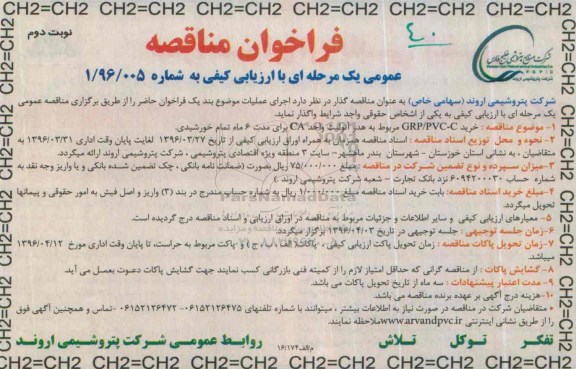 CH2=CH2 CH2=CH2 CH2=CH2 CH2=CH2 CH2=CH2 CH2=CH2
نوبت دوم
فراخوان مناقصه
۴۰
شرکت پتروشیمی اروند
عمومی یک مرحله ای با ارزیابی کیفی به شماره ۱/۹۶/۰۰۵
شرکت پتروشیمی اروند (سهامی خاص) به عنوان مناقصه گذار در نظر دارد اجرای عملیات موضوع بند یک فراخوان حاضر را از طریق برگزاری مناقصه عمومی
یک مرحله ای با ارزیابی کیفی به یکی از اشخاص حقوقی واجد شرایط واگذار نماید.
۱- موضوع مناقصه : خرید GRP/PVC-C مربوط به هدر آنولیت واحد CA برای مدت ۶ ماه تمام خورشیدی.
۲- نحوه و محل توزیع اسناد مناقصه : اسناد مناقصه همزمان به همراه اوراق ارزیابی کیفی از تاریخ ۱۳۹۶/۰۳/۲۷ لغایت پایان وقت اداری ۱۳۹۶/۰۳/۳۱ به
متقاضیان ، به نشانی استان خوزستان - شهرستان بندر ماهشهر- سایت ۳ منطقه ویژه اقتصادی پتروشیمی ، شرکت پتروشیمی اروند ارائه میگردد.
۳-میزان سپرده و نوع تضمین شرکت در مناقصه : مبلغ ۷۵/۰۰۰/۰۰۰ ریال بصورت (ضمانت نامه بانکی ، چک تضمین شده بانکی و یا واریز وجه نقد به
شماره حساب ۶۰۹۴۲۰۰۰۳۰ نزد بانک تجارت - شعبه شرکت پتروشیمی اروند )
۴-مبلغ خرید اسناد مناقصه: بابت خرید اسناد مناقصه مبلغ ۱/۰۰۰/۰۰۰ ریال به شماره حساب مندرج در بند (۳) واریز و اصل فیش به امور حقوقی و پیمانها
تحویل میگردد.
۵- معیارهای ارزیابی کیفی و سایر اطلاعات و جزئیات مربوط به مناقصه در اوراق ارزیابی و اسناد مناقصه درج گردیده است.
۶-زمان جلسه توجیهی : جلسه توجیهی در تاریخ ۱۳۹۶/۰۴/۰۳ برگزار میگردد.
۷- زمان تحویل پاکات مناقصه : زمان تحویل پاکت ارزیابی کیفی ، پاکات( الف ،ب ، ج ) و پاکت مربوط به حراست، تا پایان وقت اداری مورخ ۱۳۹۶/۰۴/۱۲
میباشد.
۸- گشایش پاکات : از مناقصه گرانی که حداقل امتیاز لازم را از کمیته فنی بازرگانی کسب نمایند جهت گشایش پاکات دعوت بعمل می آید.
۹- مدت اعتبار پیشنهادات : سه ماه از تاریخ تحویل پاکات می باشد.
۱۰-هزینه درج آگهی بر عهده برنده مناقصه می باشد.
* متقاضیان شرکت در مناقصه در صورت نیاز به اطلاعات بیشتر ، میتوانند با شماره تلفنهای ۰۶۱۵۲۱۲۶۴۷۵- ۰۶۱۵۲۱۲۶۴۷۲ -تماس و همچنین آگهی فوق
را از طریق نشانی اینترنتی www.arvandpvc.ir ملاحظه نمایند.
تفکر توکل تلاش روابط عمومی شرکت پتروشیمی اروند
م/الف ۱۶/۱۷۴
CH2=CH2 CH2=CH2 CH2=CH2 CH2=CH2 CH2=CH2 CH2=CH2
ParsNamadData